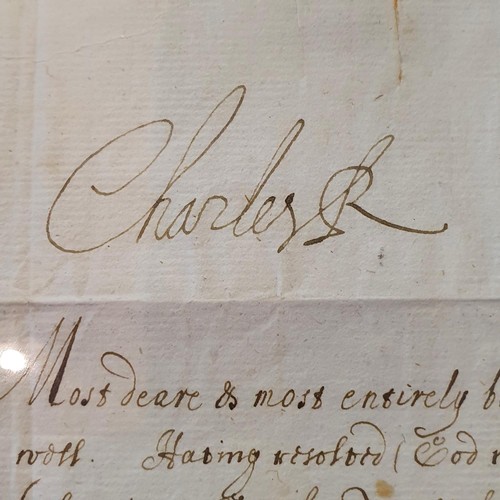 Charles R
Most deare & most entirely
well. Having resolved (God